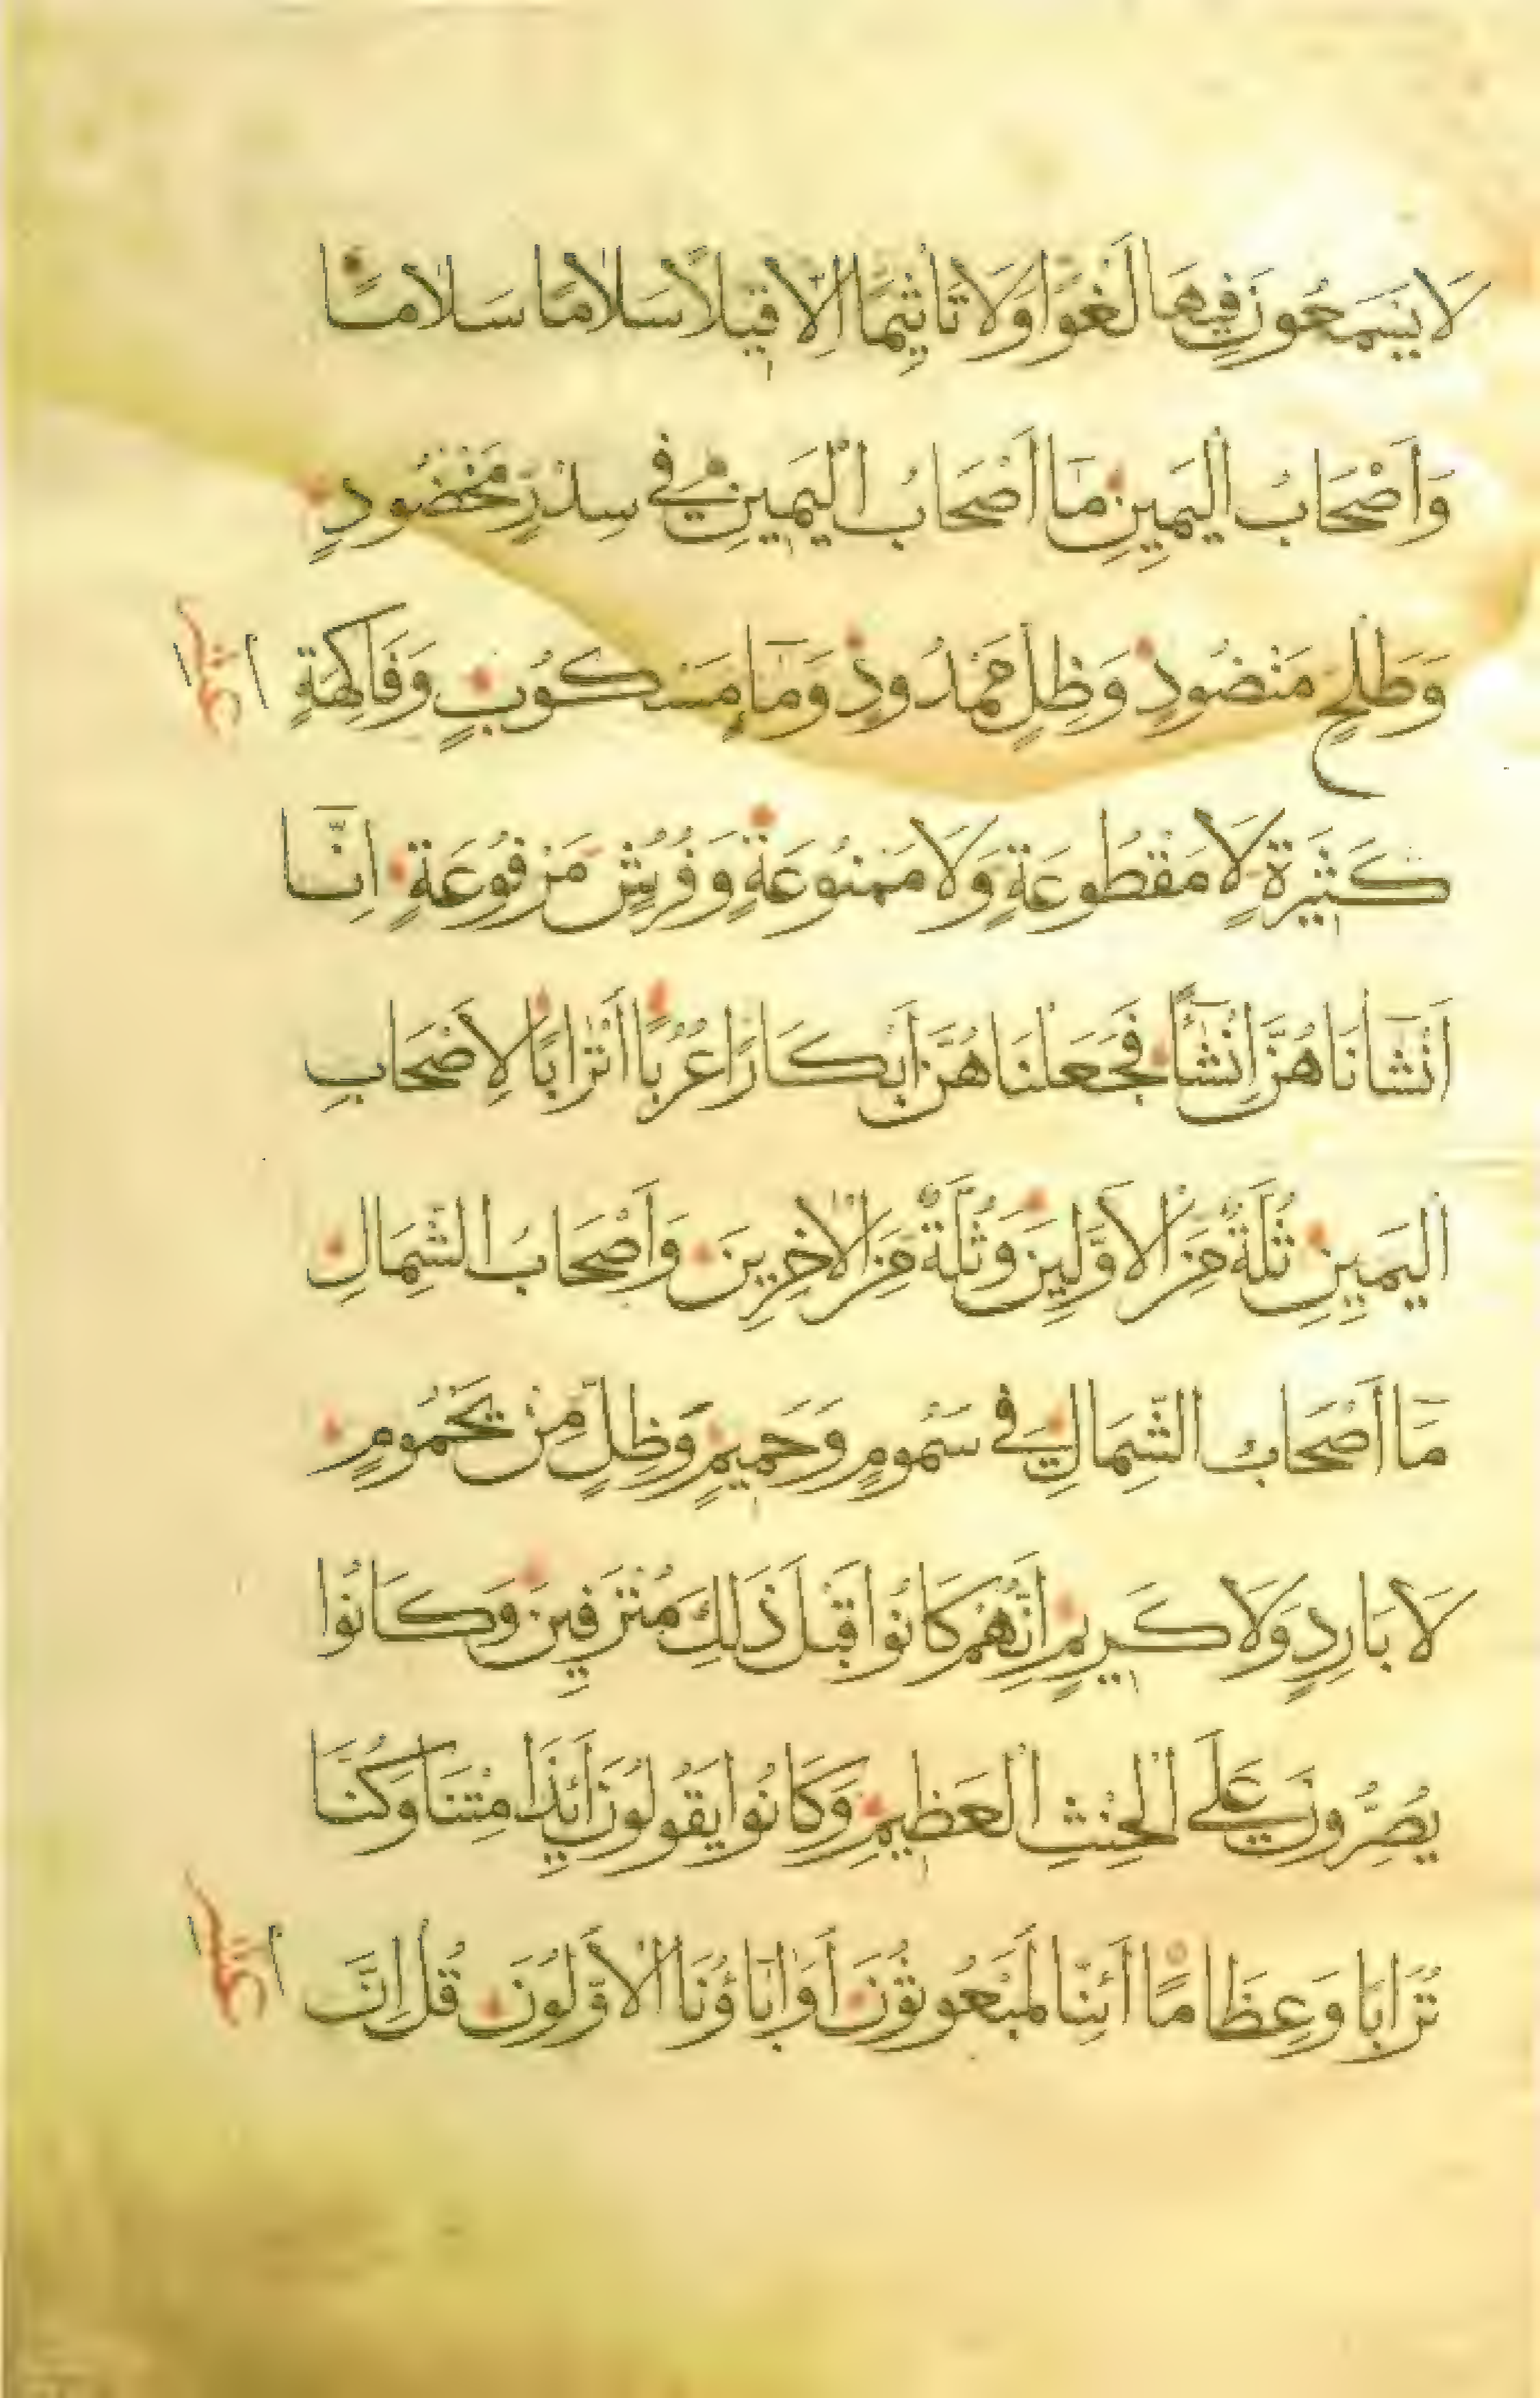 لَا يَسْمَعُونَ فِيهَا لَغْوًا وَلَا تَاثِيمًا اِلَّا قِيلًا سَلَامًا سَلَامًا
وَاَصْحَابُ الْيَمِينِ مَا اَصْحَابُ الْيَمِينِ فِي سِدْرٍ مَخْضُودٍ
وَطَلْحٍ مَنْضُودٍ وَظِلٍّ مَمْدُودٍ وَمَاءٍ مَسْكُوبٍ وَفَاكِهَةٍ
كَثِيرَةٍ لَا مَقْطُوعَةٍ وَلَا مَمْنُوعَةٍ وَفُرُشٍ مَرْفُوعَةٍ اِنَّا
اَنْشَانَاهُنَّ اِنْشَاءً فَجَعَلْنَاهُنَّ اَبْكَارًا عُرُبًا اَتْرَابًا لِاَصْحَابِ
الْيَمِينِ ثُلَّةٌ مِنَ الْاَوَّلِينَ وَثُلَّةٌ مِنَ الْاٰخِرِينَ وَاَصْحَابُ الشِّمَالِ
مَا اَصْحَابُ الشِّمَالِ فِي سَمُومٍ وَحَمِيمٍ وَظِلٍّ مِنْ يَحْمُومٍ
لَا بَارِدٍ وَلَا كَرِيمٍ اِنَّهُمْ كَانُوا قَبْلَ ذَلِكَ مُتْرَفِينَ وَكَانُوا
يُصِرُّونَ عَلَى الْحِنْثِ الْعَظِيمِ وَكَانُوا يَقُولُونَ اَئِذَا مِتْنَا وَكُنَّا
تُرَابًا وَعِظَامًا اَئِنَّا لَمَبْعُوثُونَ اَوَاٰبَاؤُنَا الْاَوَّلُونَ قُلْ اِنَّ